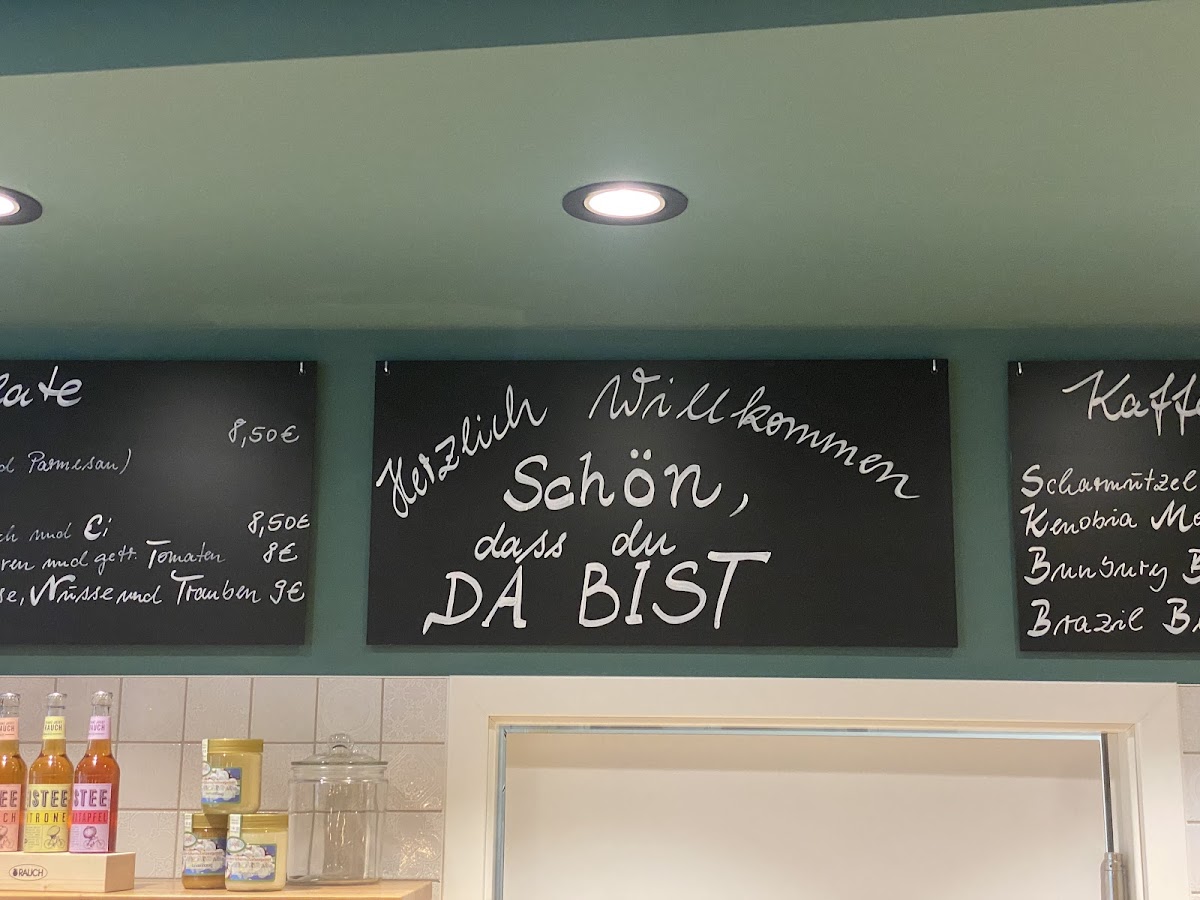 late
8,50€
d Parmesan)
ch und Ei 8,50€
ren und getr. Tomaten 8€
se, Nüsse und Trauben 9€
Herzlich Willkommen
Schön,
dass du
DA BIST
Kaff
Scharmützel
Kenobia Me
Bunbury B
Brazil Br
RAUCH
RAUCH
EE
ISTEE
STEE
CH
ITRONE
ITAPFEL
RAUCH